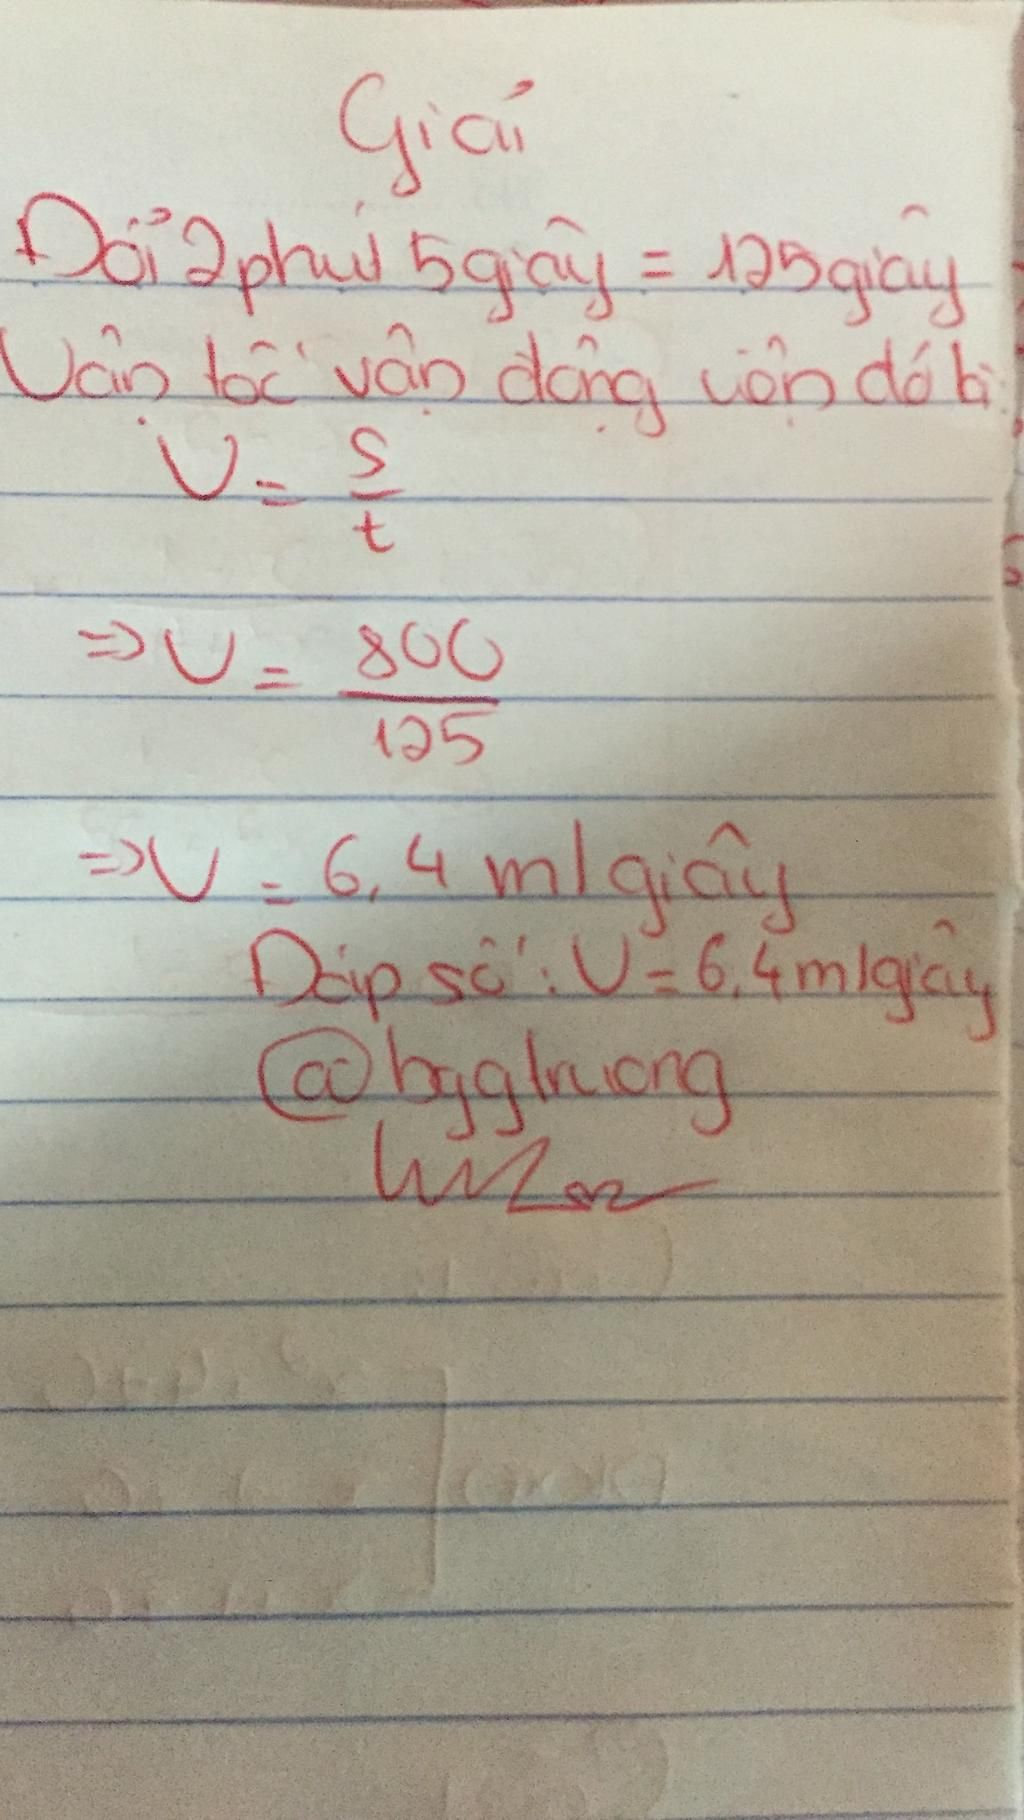 Giải
Đổi 2 phút 5 giây = 125 giây
Vận tốc vận động viên đó là:
V = s/t
=> V = 800/125
=> V = 6,4 m/giây
Đáp số: V = 6,4 m/giây
@bggtruong